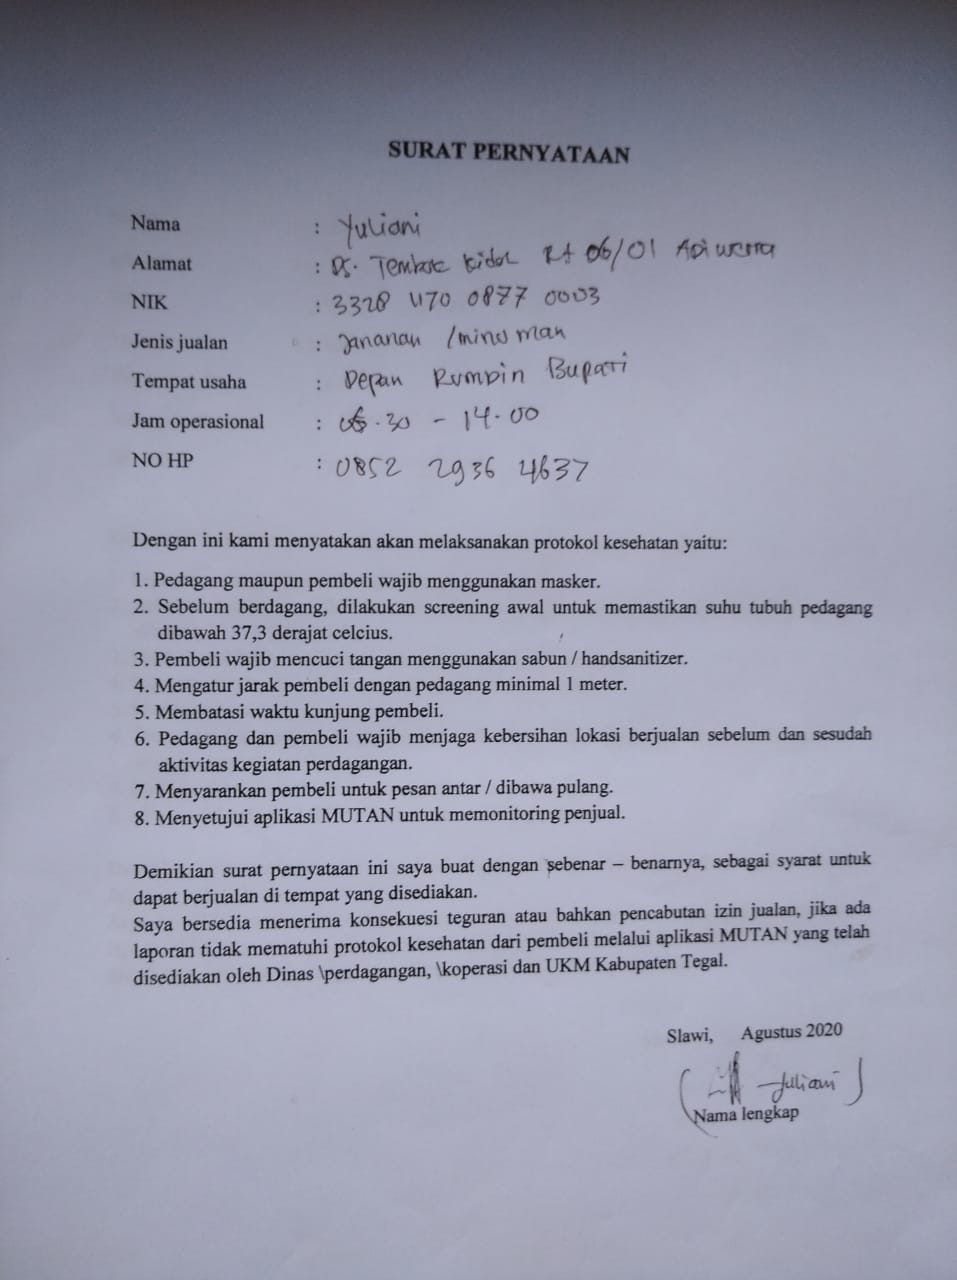 SURAT PERNYATAAN
Nama : Yuliani
Alamat : Ds. Tembok Kidol Rt 06/01 Adiwerna
NIK : 3328 1170 0877 0003
Jenis jualan : Jananan /minuman
Tempat usaha : Depan Rumdin Bupati
Jam operasional : 06.30 - 14.00
NO HP : 0852 2936 4637
Dengan ini kami menyatakan akan melaksanakan protokol kesehatan yaitu:
1. Pedagang maupun pembeli wajib menggunakan masker.
2. Sebelum berdagang, dilakukan screening awal untuk memastikan suhu tubuh pedagang
dibawah 37,3 derajat celcius.
3. Pembeli wajib mencuci tangan menggunakan sabun / handsanitizer.
4. Mengatur jarak pembeli dengan pedagang minimal 1 meter.
5. Membatasi waktu kunjung pembeli.
6. Pedagang dan pembeli wajib menjaga kebersihan lokasi berjualan sebelum dan sesudah
aktivitas kegiatan perdagangan.
7. Menyarankan pembeli untuk pesan antar / dibawa pulang.
8. Menyetujui aplikasi MUTAN untuk memonitoring penjual.
Demikian surat pernyataan ini saya buat dengan sebenar – benarnya, sebagai syarat untuk
dapat berjualan di tempat yang disediakan.
Saya bersedia menerima konsekuesi teguran atau bahkan pencabutan izin jualan, jika ada
laporan tidak mematuhi protokol kesehatan dari pembeli melalui aplikasi MUTAN yang telah
disediakan oleh Dinas \perdagangan, \koperasi dan UKM Kabupaten Tegal.
Slawi, Agustus 2020
( Yuliani )
Nama lengkap